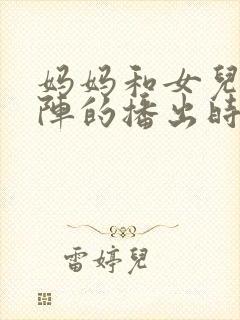 妈妈和女兒
陣的播出時
雷婷兒